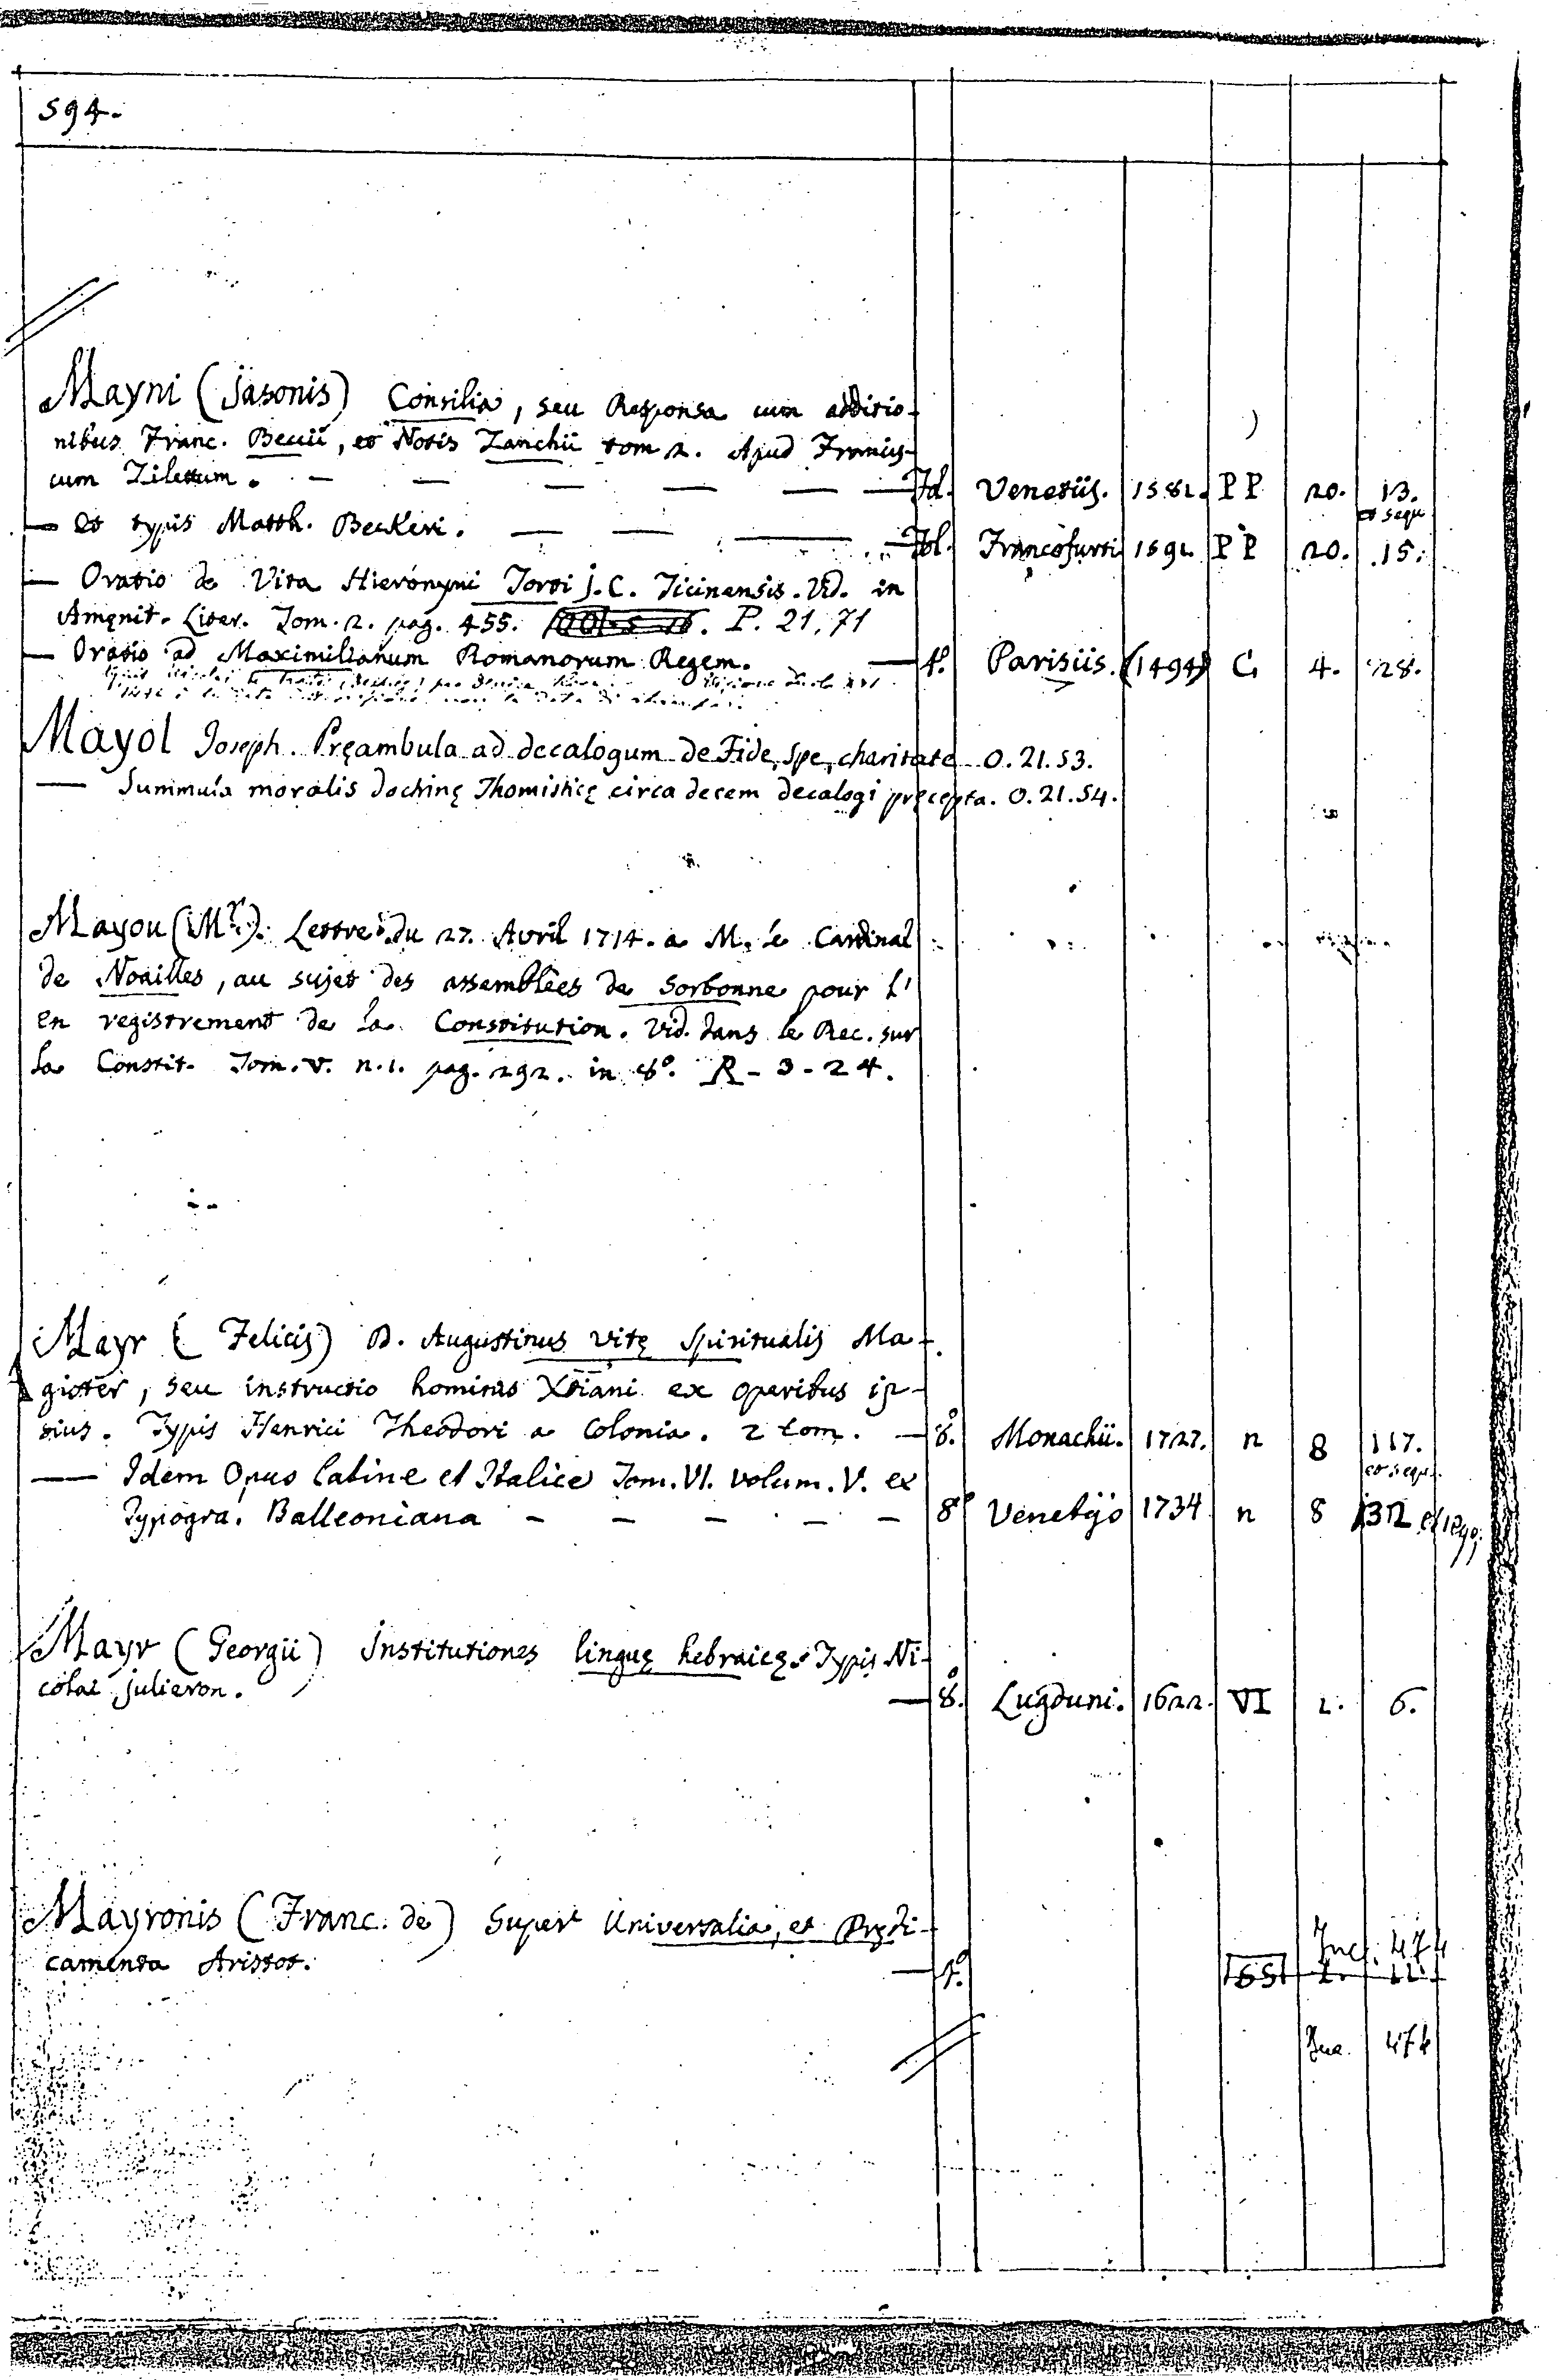 594.
Mayni (Jasonis) Consilia, seu Responsa cum additio-
nibus Franc. Becii, et Notis Zanchii tom 2. Apud Francis-
cum Zilettum. — — — — — — Fol. Venetiis. 1581. PP 20. 13. et sequ.
— et typis Matth. Beckeri. — — — Fol. Francofurti 1591 PP 20. 15.
— Oratio de Vita Hieronymi Torti J. C. Ticinensis. Vid. in
Amęnit. Liter. Tom. 2. pag. 455. P. 21. 71
— Oratio ad Maximilianum Romanorum Regem. — 4.º Parisiis. (1494) C. 4. 28.
Mayol Joseph. Pręambula ad decalogum de Fide, Spe, charitate O. 21. 53.
— Summula moralis doctrinę Thomisticę circa decem decalogi pręcepta. O. 21. 54.
Mayou (Mr.). Lettre du 27. Avril 1714. a M. le Cardinal
de Noailles, au sujet des assemblées de Sorbonne pour l'
en registrement de la Constitution. Vid. dans le Rec. sur
la Constit. Tom. V. n. 1. pag. 292. in 8º. R - 3 - 24.
Mayr (Felicis) D. Augustinus vitę Spiritualis Ma-
gister, seu instructio hominis Xtiani ex operibus ip-
sius. Typis Henrici Theodori a Colonia. 2 tom. — 8.º Monachii. 1727. n 8 117. et sequ.
— Idem Opus Latine et Italice Tom. VI. volum. V. ex
Typogra. Balleoniana — — — — — 8º Venetijs 1734 n 8 132 et seqq.
Mayr (Georgii) Institutiones linguę hebraicę. Typis Ni-
colai Julieron. — 8.º Lugduni. 1622. VI 2. 6.
Mayronis (Franc. de) Super Universalia, et Prędi-
camenta Aristot. — 4.º SS 1. 11. Inc. 474
Inc. 474